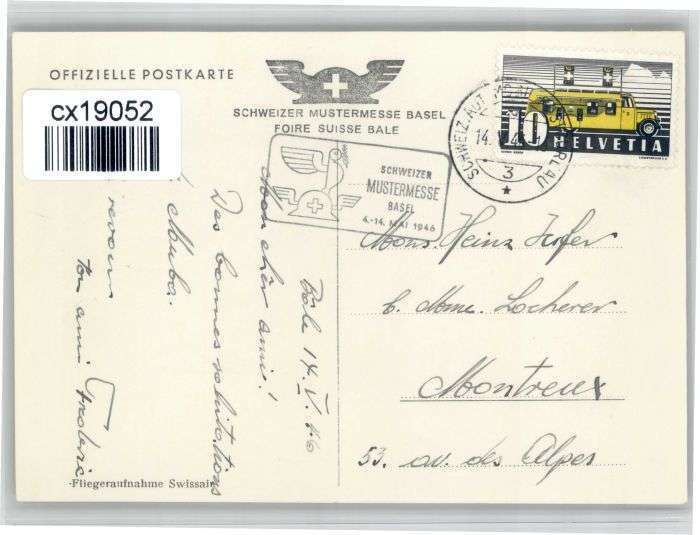 OFFIZIELLE POSTKARTE
cx19052
SCHWEIZER MUSTERMESSE BASEL
FOIRE SUISSE BALE
SCHWEIZER
MUSTERMESSE
BASEL
4.-14. MAI 1946
SCHWEIZ. AUT.
14. V. 4
3
10
HELVETIA
Bâle 14. V. 46
Mon cher ami!
Des bonnes salutations
Muba.
revoir
ton ami Frédéric
Mons. Heinz Hofer
b. Mme. Locherer
Montreux
53. av. des Alpes
Fliegeraufnahme Swissair